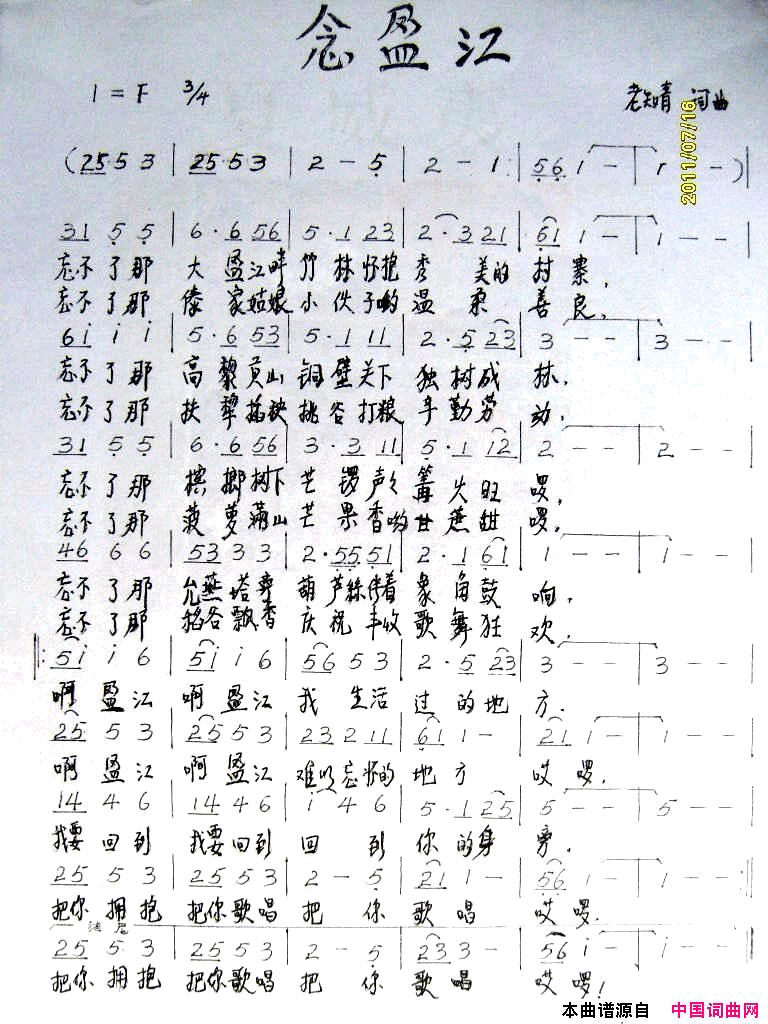 念盈江
1=F 3/4 老知青 词曲
2011/07/16
(25 5 3 | 25·5 3 | 2 - 5 | 2 - 1 | 56 1 - | 1 - - )
31 5 5 | 6·6 56 | 5·1 23 | 2·3 21 | 61 1 - | 1 - -
忘不了那 大盈江畔 竹林怀抱 秀 美的 村寨,
忘不了那 傣家姑娘 小伙子哟 温 柔 善良,
61 i i | 5·6 53 | 5·1 11 | 2·5 23 | 3 - - | 3 - -
忘不了那 高黎贡山 铜壁关下 独树成 林,
忘不了那 扶犁插秧 挑谷打粮 辛勤劳 动,
31 5 5 | 6·6 56 | 3·3 11 | 5·1 12 | 2 - - | 2 - -
忘不了那 槟榔树下 芒锣声声 篝火旺 啰,
忘不了那 菠萝满山 芒果香哟 甘蔗甜 啰,
46 6 6 | 53 3 3 | 2·55 51 | 2·1 61 | 1 - - | 1 - -
忘不了那 允燕塔旁 葫芦丝伴着 象角鼓 响,
忘不了那 稻谷飘香 庆祝丰收 歌舞狂 欢,
51 i 6 | 51 i 6 | 56 5 3 | 2·5 23 | 3 - - | 3 - -
啊 盈江 啊 盈江 我 生活 过的地 方.
25 5 3 | 25 5 3 | 23 2 11 | 61 1 - | 21 1 - | 1 - -
啊 盈江 啊 盈江 难以忘怀的 地方 哎啰.
14 4 6 | 14 4 6 | i 4 6 | 5·1 25 | 5 - - | 5 - -
我要回到 我要回到 回 到 你的身 旁.
25 5 3 | 25 5 3 | 2 - 5 | 21 1 - | 56 1 - | 1 - -
把你拥抱 把你歌唱 把 你 歌唱 哎啰.
结尾
25 5 3 | 25 5 3 | 2 - 5 | 23 3 - | 56 i - | i - -
把你拥抱 把你歌唱 把 你 歌唱 哎啰!
本曲谱源自 中国词曲网